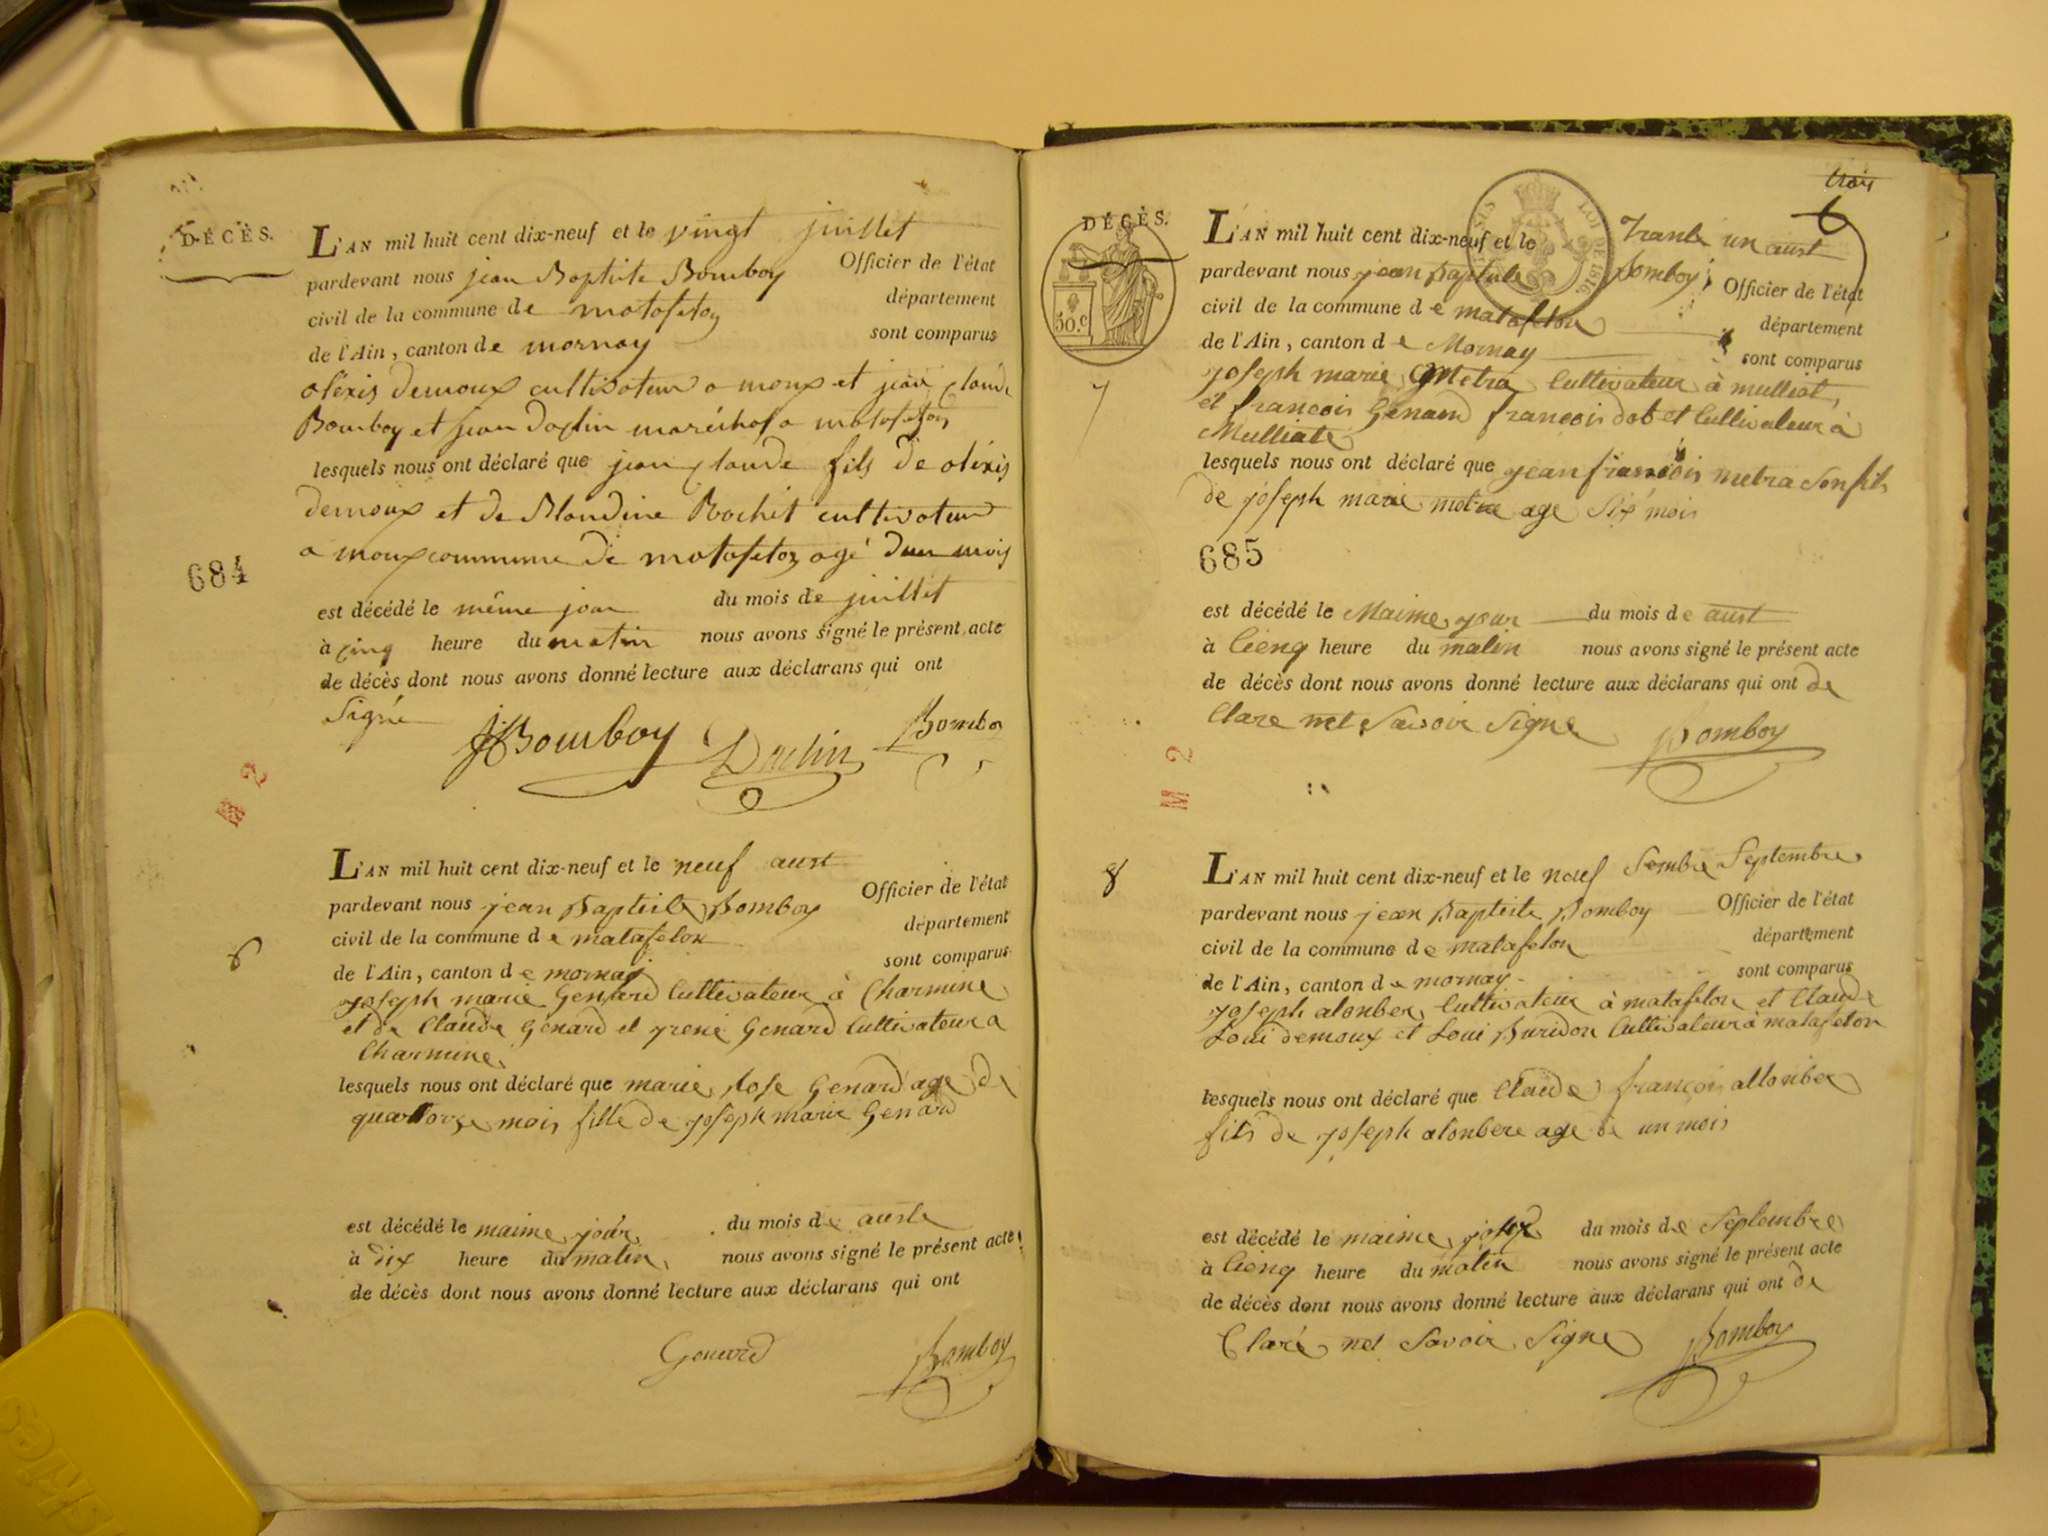 DÉCÈS.
L'AN mil huit cent dix-neuf et le vingt juillet
pardevant nous jean Baptiste Bomboy Officier de l'état
civil de la commune de matafelon département
de l'Ain, canton de mornay sont comparus
aléxis demoux cultivateur a moux et jean claude
Bomboy et jean Daclin maréchal a matafelon
lesquels nous ont déclaré que jean claude fils de aléxis
demoux et de Blandine Rochet cultivateur
a moux commune de matafelon agé dun mois
684
est décédé le même jour du mois de juillet
à cinq heure du matin nous avons signé le présent acte
de décès dont nous avons donné lecture aux déclarans qui ont
Signé
JBomboy Daclin Bomboy
M 2
L'AN mil huit cent dix-neuf et le neuf aust
pardevant nous jean Baptiste Bomboy Officier de l'état
civil de la commune de matafelon département
6
de l'Ain, canton de mornay sont comparus
joseph marie Genard Cultivateur à Charmine
et de Claude Genard et Genard Cultivateur a
Charmine
lesquels nous ont déclaré que marie Rose Genard age de
quatorze mois fille de joseph marie Genard
est décédé le maime jour du mois de auste
à dix heure du matin nous avons signé le présent acte
de décès dont nous avons donné lecture aux déclarans qui ont
Genard Bomboy
trois
6
DÉCÈS.
50.c
LOI DE 1816
L'AN mil huit cent dix-neuf et le Trante un aust
pardevant nous jean Baptiste Bomboy Officier de l'état
civil de la commune de matafelon département
de l'Ain, canton de Mornay sont comparus
7
joseph marie Metra Cultivateur à mulliat
et francois Genard francois dot et Cultivateur à
Mulliate
lesquels nous ont déclaré que jean francois metra son fils
de joseph marie age Six mois
685
est décédé le Maime jour du mois de aust
à Cienq heure du matin nous avons signé le présent acte
de décès dont nous avons donné lecture aux déclarans qui ont de
Clare net Savoir Signe Bomboy
M 2
8
L'AN mil huit cent dix-neuf et le neuf Sembre Septembre
pardevant nous jean Baptiste Bomboy Officier de l'état
civil de la commune de matafelon département
de l'Ain, canton de mornay sont comparus
joseph alonber Cultivateur à matafelon et Claude
Loui demoux et Loui Buridon Cultivateur à matafelon
lesquels nous ont déclaré que Claude françois allonber
fils de joseph alonbere age de un mois
est décédé le maime jour du mois de Septembre
à Cienq heure du matin nous avons signé le présent acte
de décès dont nous avons donné lecture aux déclarans qui ont de
Claré net Savoir Signe Bomboy